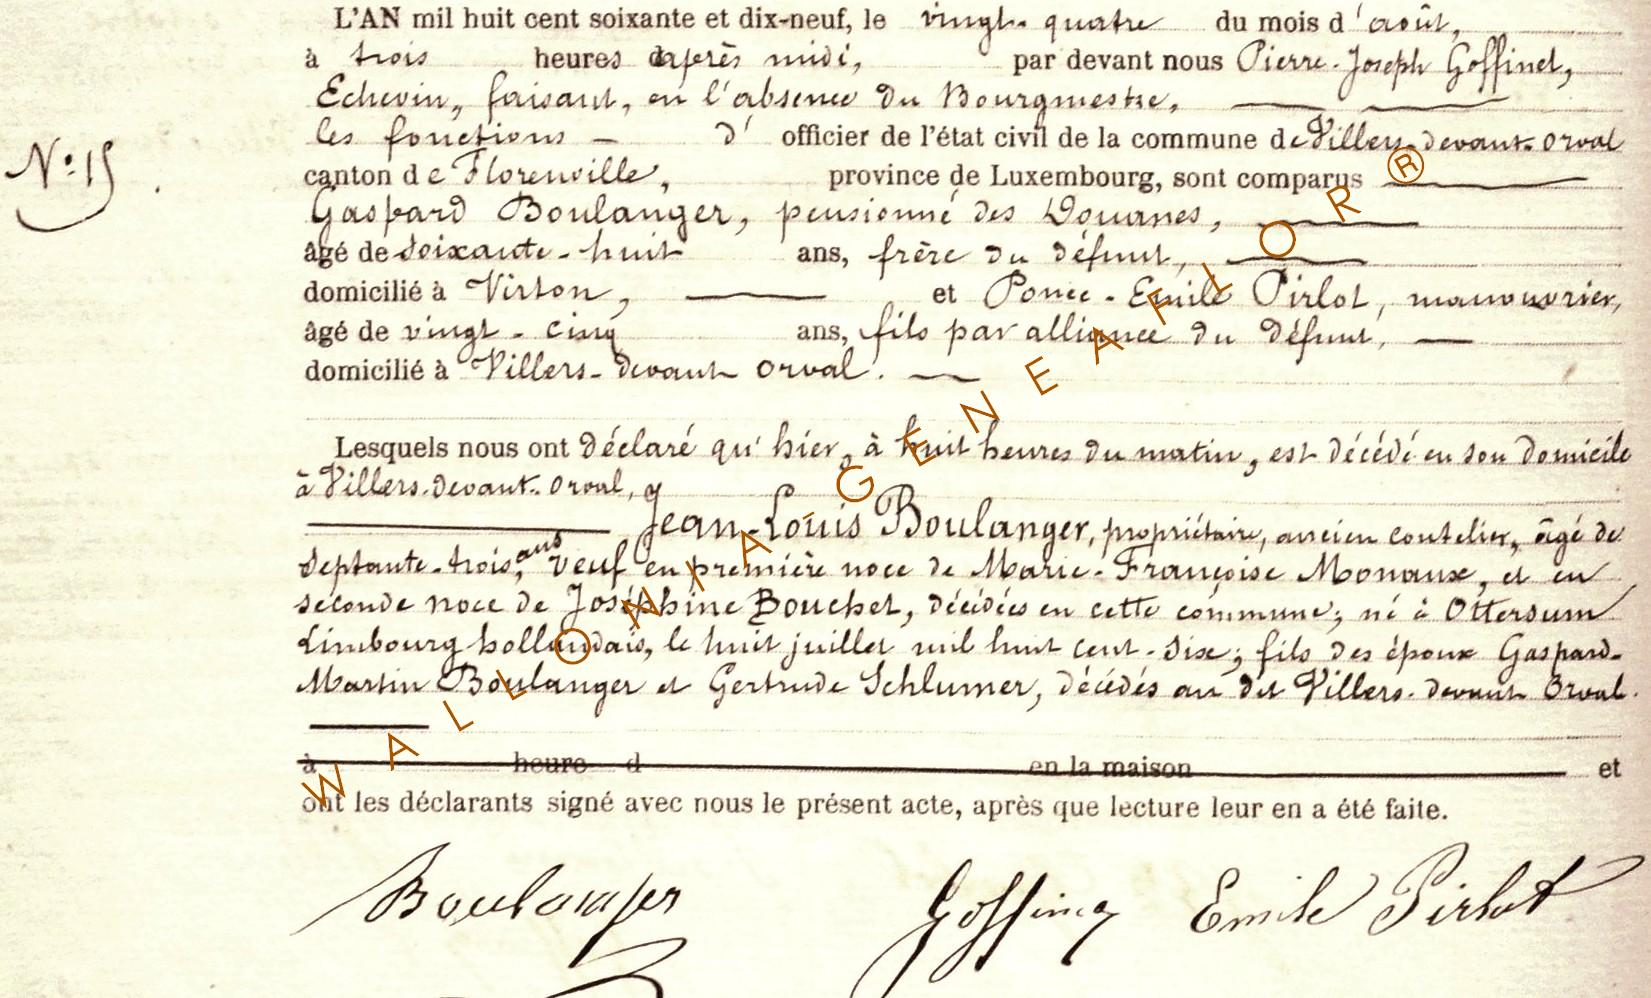 L'AN mil huit cent soixante et dix-neuf, le vingt-quatre du mois d'août,
à trois heures d'après midi, par devant nous Pierre-Joseph Goffinet,
Echevin, faisant, en l'absence du Bourgmestre,
les fonctions d' officier de l'état civil de la commune de Villers-devant-Orval
N° 15 .
canton de Florenville, province de Luxembourg, sont comparus
Gaspard Boulanger, pensionné des Douanes,
âgé de soixante-huit ans, frère du défunt,
domicilié à Virton, et Ponce-Emile Pirlot, manouvrier,
âgé de vingt-cinq ans, fils par alliance du défunt,
domicilié à Villers-devant Orval.
Lesquels nous ont déclaré qu'hier, à huit heures du matin, est décédé en son domicile
à Villers-devant-Orval,
Jean-Louis Boulanger, propriétaire, ancien coutelier, âgé de
septante-trois, ans veuf en première noce de Marie-Françoise Monaux, et en
seconde noce de Joséphine Bouchet, décédées en cette commune; né à Ottersum
Limbourg hollandais, le huit juillet mil huit cent-six; fils des époux Gaspard-
Martin Boulanger et Gertrude Schlumer, décédés au dit Villers-devant Orval.
à heure d en la maison et
ont les déclarants signé avec nous le présent acte, après que lecture leur en a été faite.
Boulanger Goffinet Emile Pirlot
WALLONIA-GENEAFLOR®